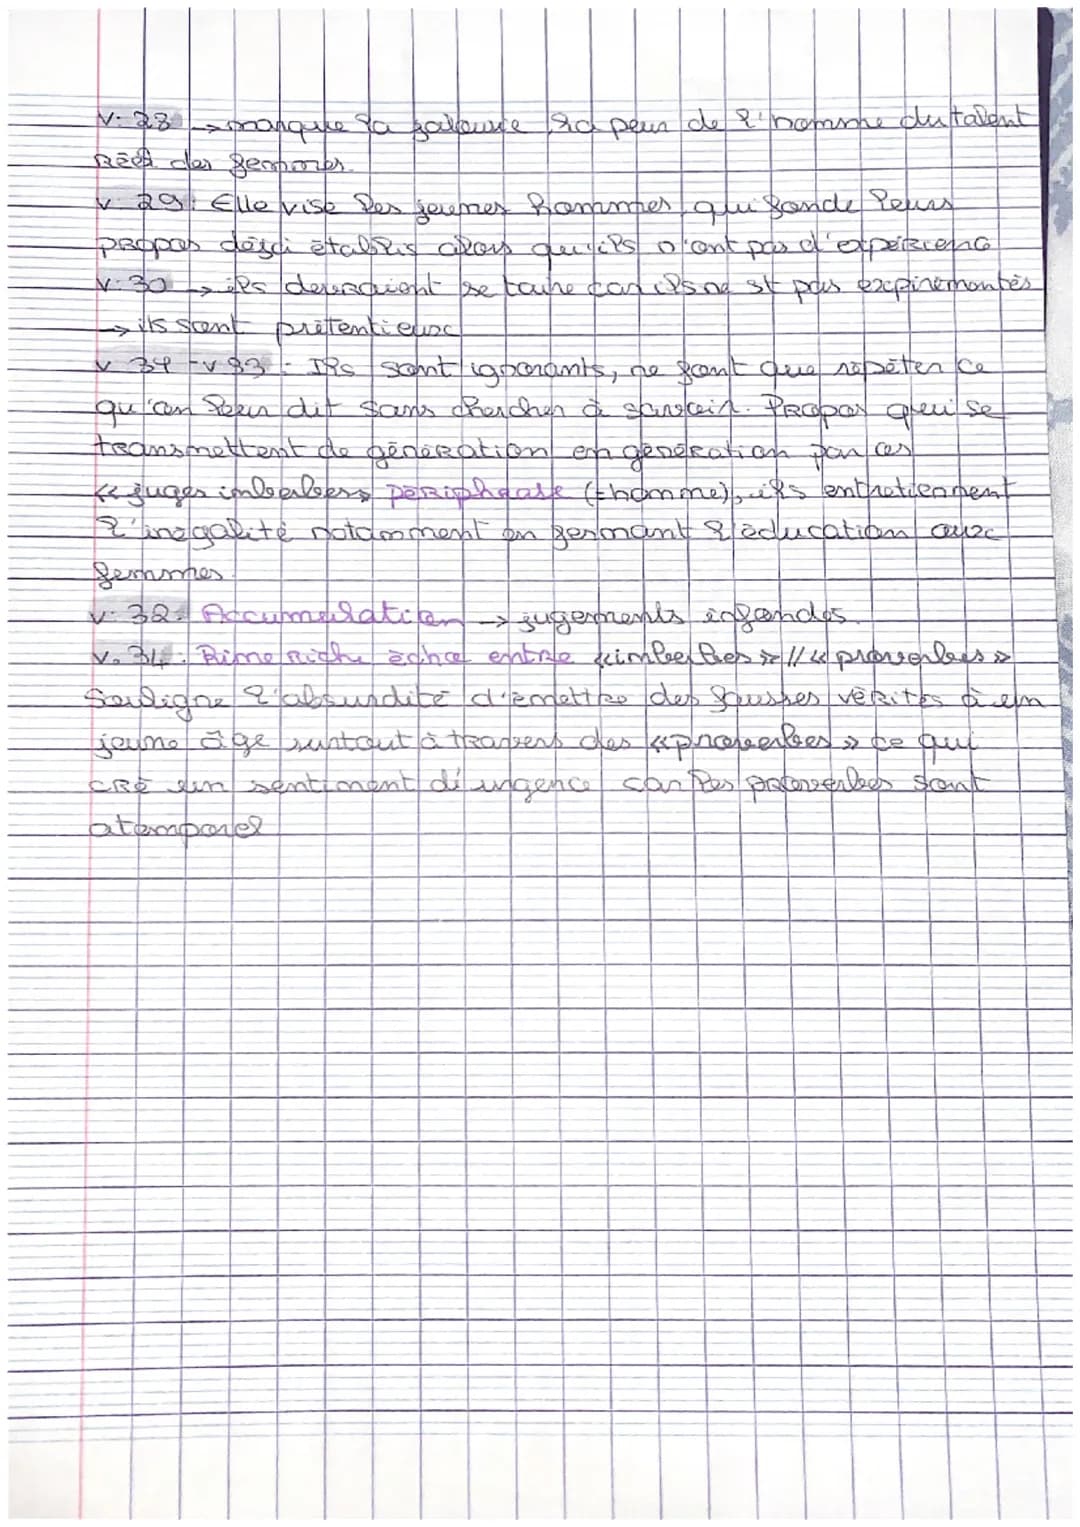 v. 28 → marque la jalousie, la peur de l'homme du talent
réel des femmes.
v. 29: Elle vise les jeunes hommes, qui fonde leurs
propos déjà établis alors qu'ils n'ont pas d'expérience
v. 30 → ils devraient se taire car ils ne st pas expirementés
→ ils sont prétentieux
v 34 - v 33 : Ils sont ignorants, ne font que répéter ce
qu'on leur dit sans chercher à savoir. Propos qui se
transmettent de génération en génération par ces
« juges imberbes » périphrase (= homme), ils entretiennent
l'inégalité notamment en fermant l'éducation aux
femmes.
v. 32. Accumulation → jugements infondés.
v. 34. Rime riche écho entre « imberbes » // « proverbes »
Souligne l'absurdité d'émettre des fausses vérités à un
jeune âge surtout à travers des « proverbes » ce qui
cré un sentiment d'urgence car les proverbes sont
atemporel